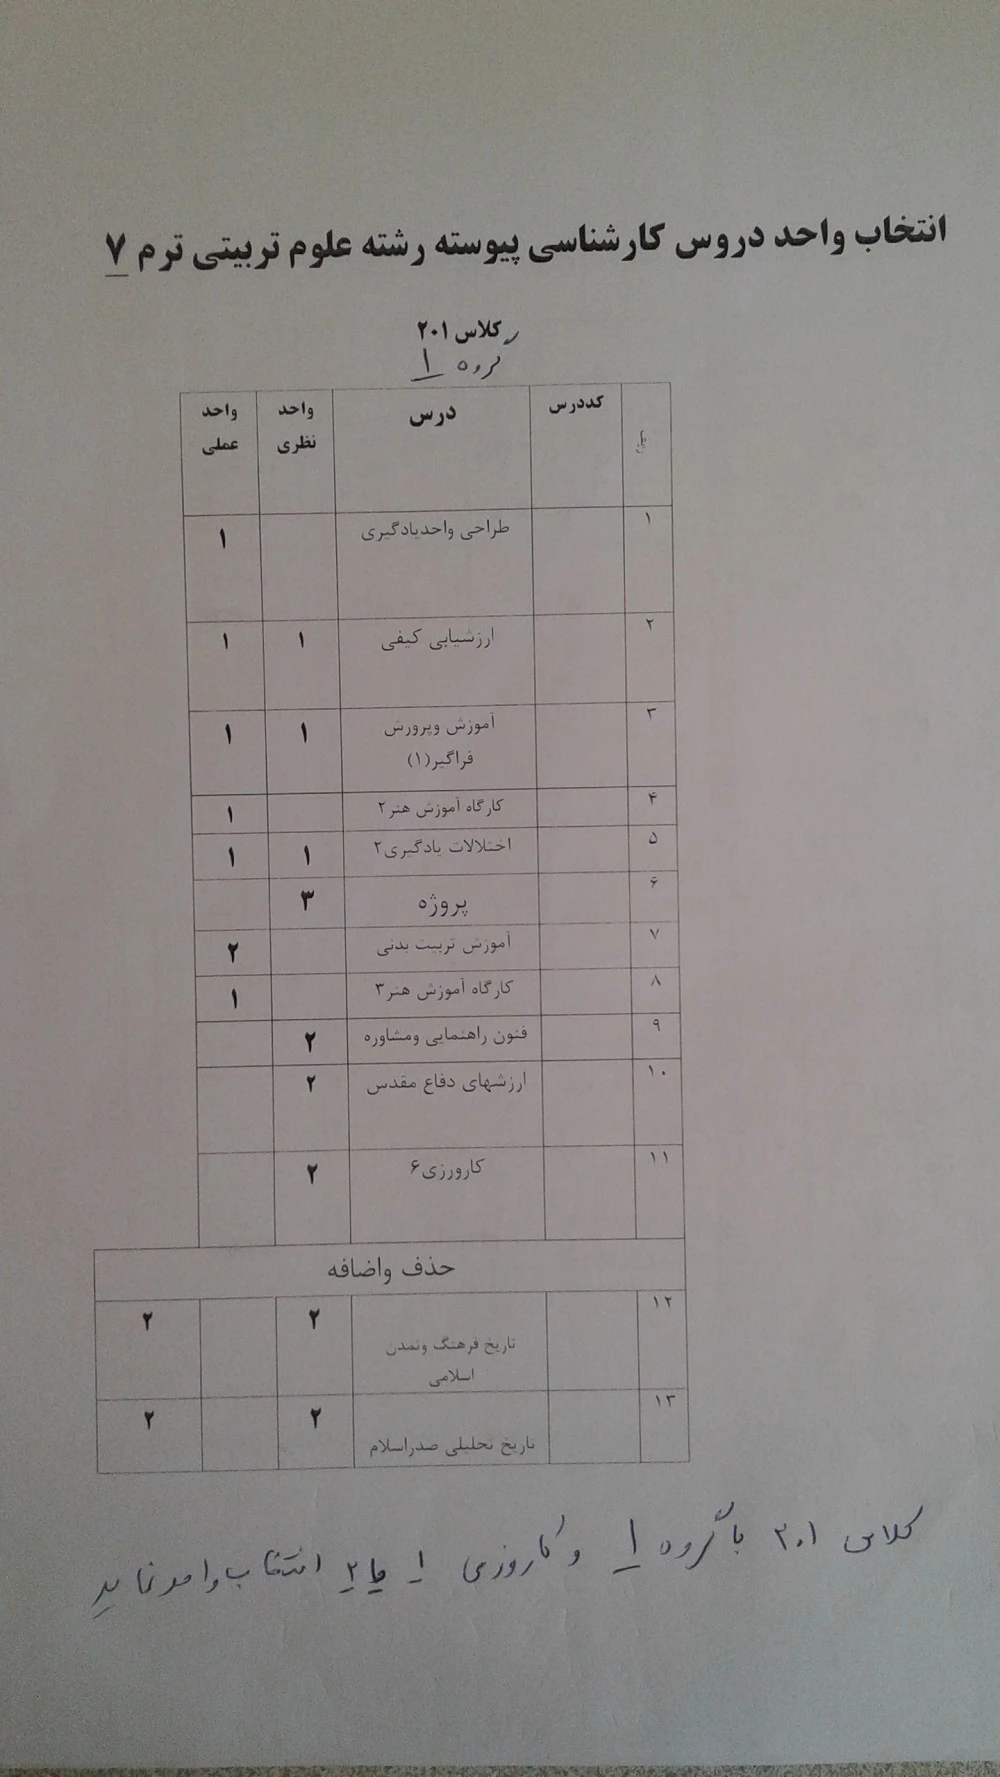 انتخاب واحد دروس کارشناسی پیوسته رشته علوم تربیتی ترم ۷
کلاس ۲۰۱
گروه ۱
کددرس درس واحد نظری واحد عملی
۱ طراحی واحدیادگیری ۱
۲ ارزشیابی کیفی ۱ ۱
۳ آموزش وپرورش فراگیر(۱) ۱ ۱
۴ کارگاه آموزش هنر۲ ۱
۵ اختلالات یادگیری۲ ۱ ۱
۶ پروژه ۳
۷ آموزش تربیت بدنی ۲
۸ کارگاه آموزش هنر۳ ۱
۹ فنون راهنمایی ومشاوره ۲
۱۰ ارزشهای دفاع مقدس ۲
۱۱ کارورزی۶ ۲
حذف واضافه
۱۲ تاریخ فرهنگ وتمدن اسلامی ۲ ۲
۱۳ تاریخ تحلیلی صدراسلام ۲ ۲
کلاس ۲۰۱ با گروه ۱ و کاروزی ۱ یا ۲ انتخاب واحد نماید